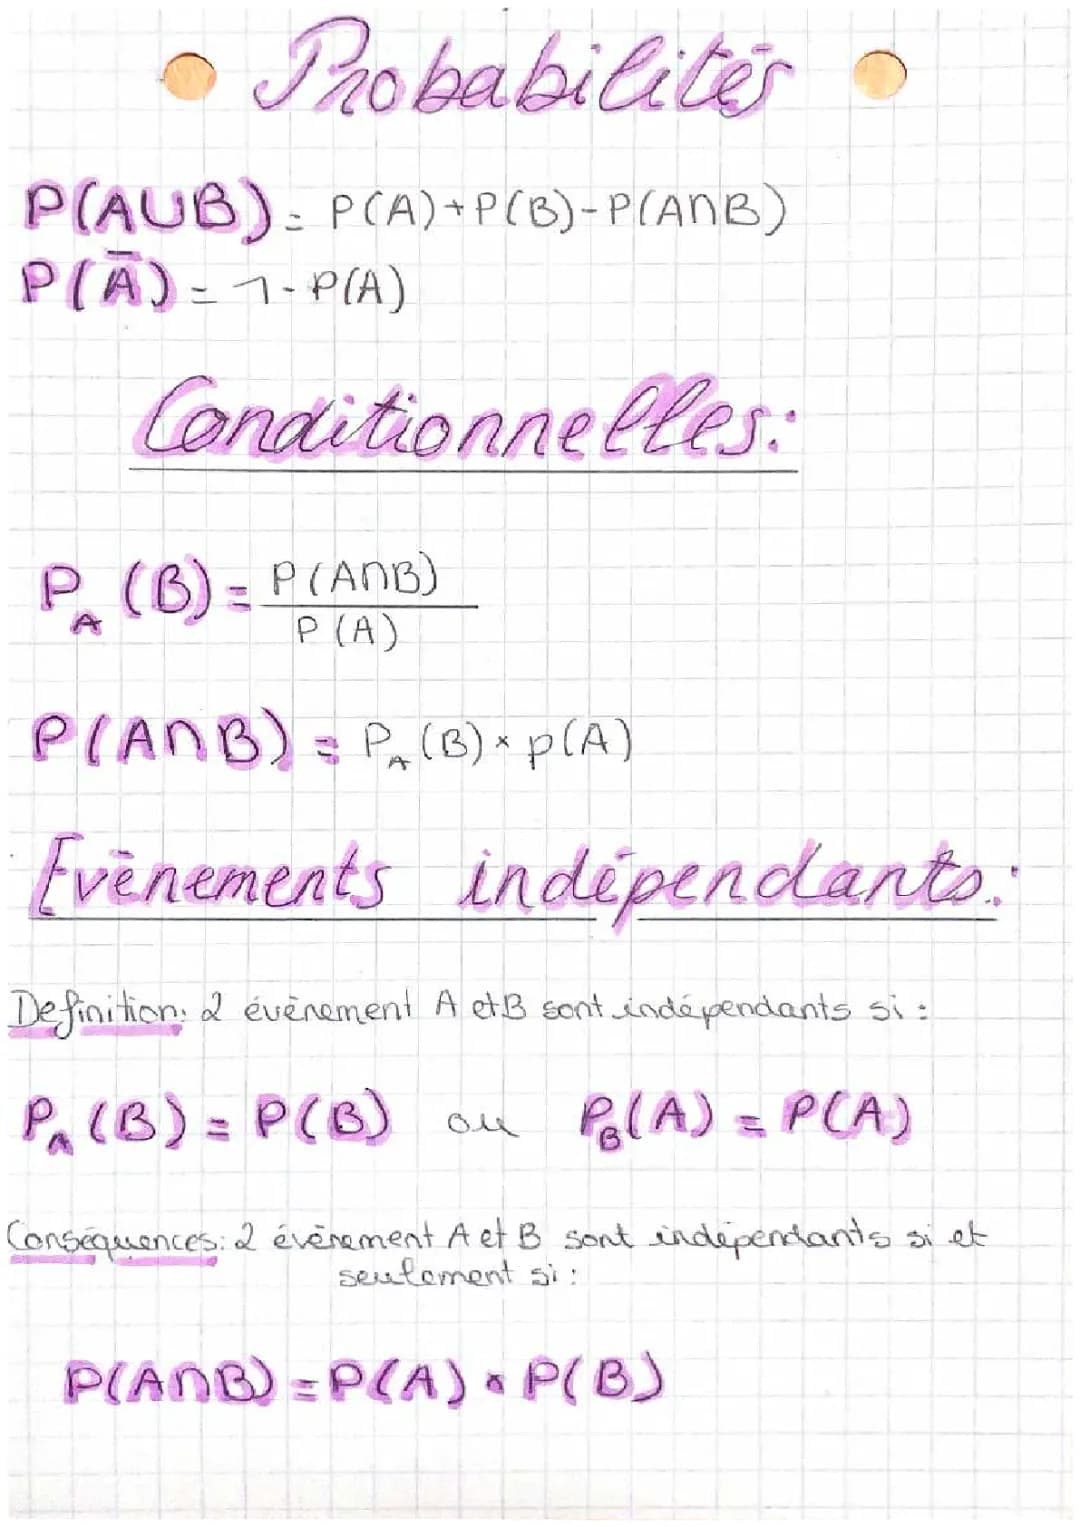 Probabilités
P(A∪B) = P(A)+P(B)-P(A∩B)
P(Ā) = 1-P(A)
Conditionnelles:
P_A (B) = P(A∩B) / P(A)
P(A∩B) = P_A (B) × p(A)
Evènements indépendants:
Definition: 2 évènement A et B sont indépendants si :
P_A (B) = P(B) ou P_B(A) = P(A)
Conséquences: 2 évènement A et B sont indépendants si et
seulement si :
P(A∩B) = P(A) × P(B)